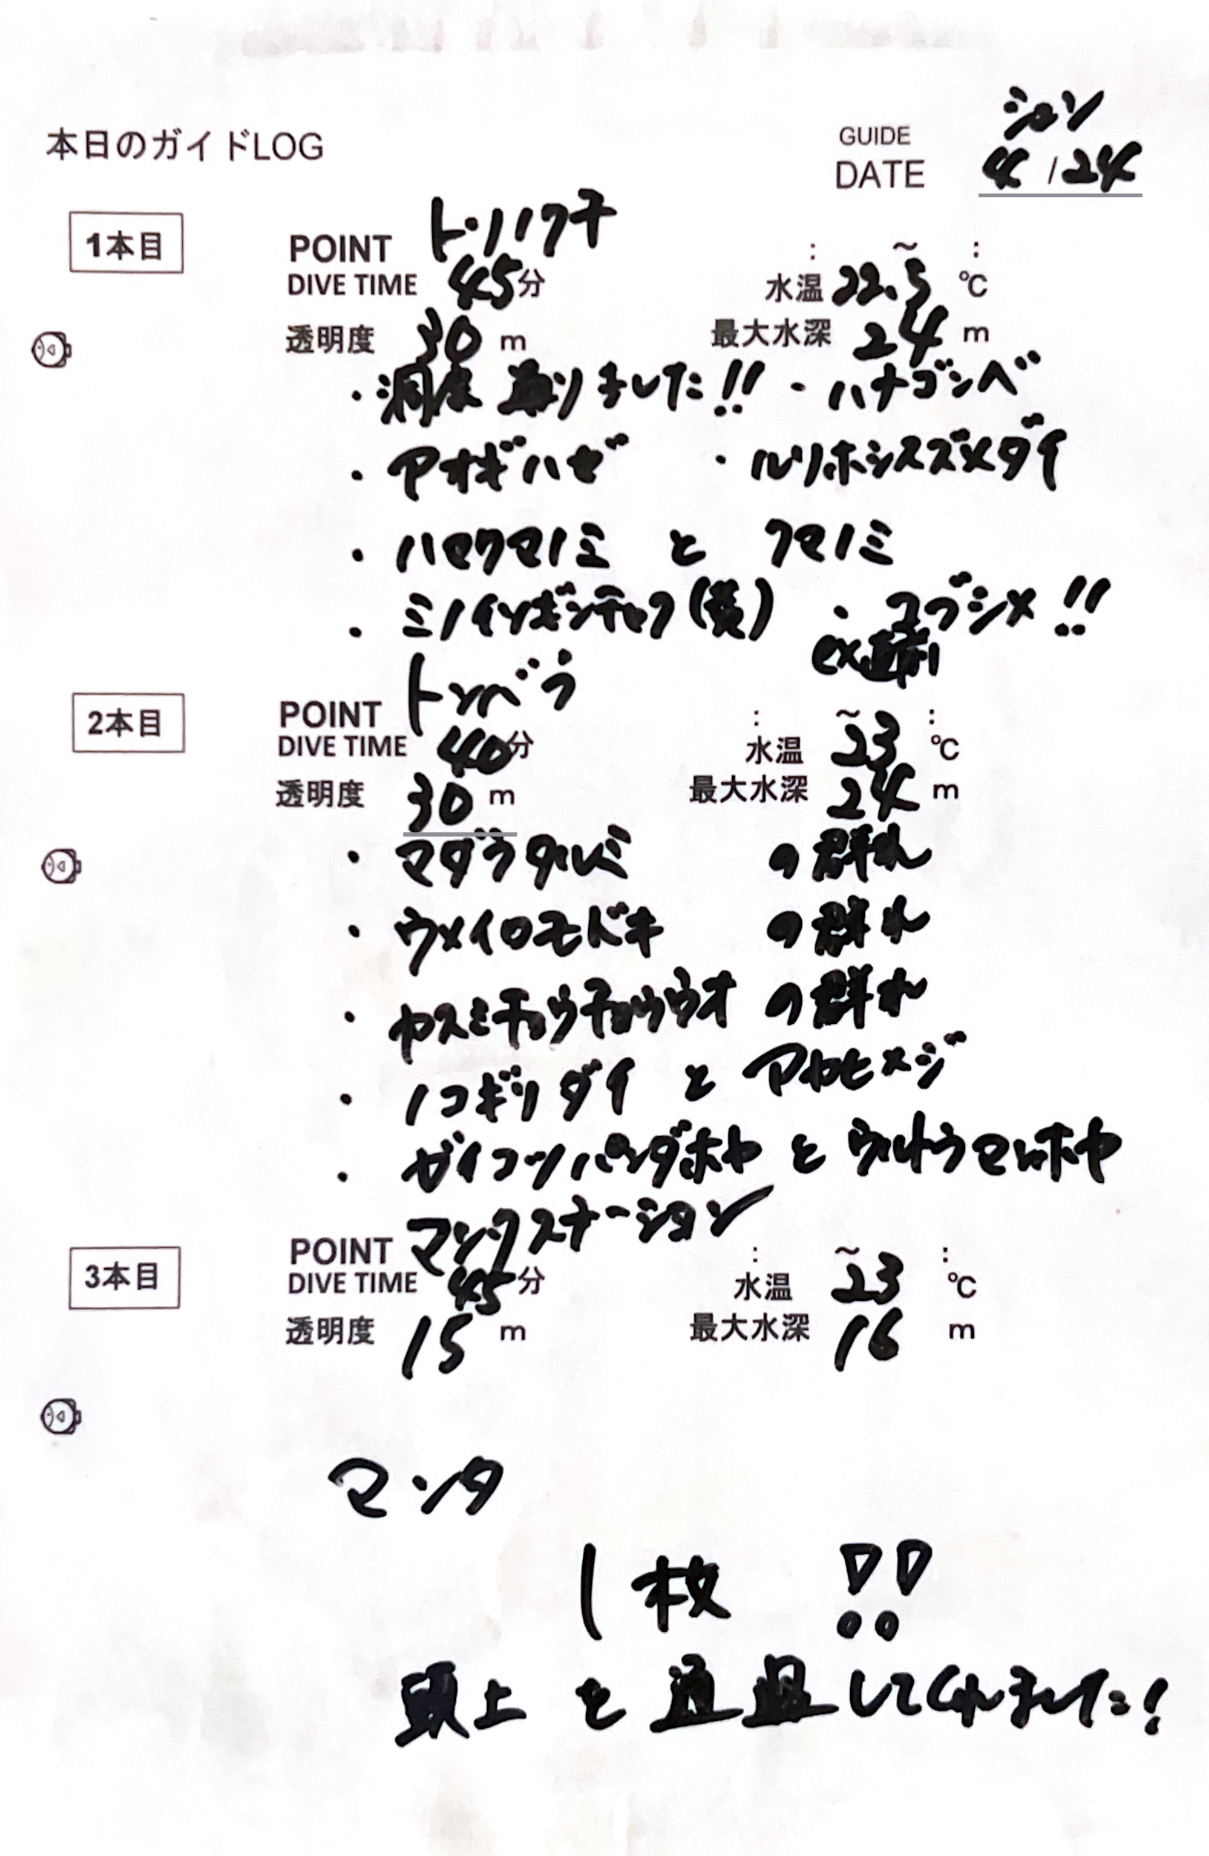 本日のガイドLOG
GUIDE ション
DATE 4/24
1本目
POINT トリノクチ : ~ :
DIVE TIME 45分 水温 22.5 ℃
透明度 30 m 最大水深 24 m
・洞窟 通りました!! ・ハナゴンベ
・アオギハゼ ・ルリホシスズメダイ
・ハマクマノミ と クマノミ
・ミノイソギンチャク(黄) ・コブシメ!!
ex直前
2本目
POINT トンバラ : ~ :
DIVE TIME 40分 水温 23 ℃
透明度 30 m 最大水深 24 m
・マダラタルミ の群れ
・ウメイロモドキ の群れ
・ヤスミチョウチョウウオ の群れ
・ノコギリダイ と アカヒメジ
・ガイコツパンダホヤ と ウルトラマンホヤ
3本目
POINT マンタステーション : ~ :
DIVE TIME 45分 水温 23 ℃
透明度 15 m 最大水深 16 m
マンタ
1枚 !!
頭上 を 通過してくれました!